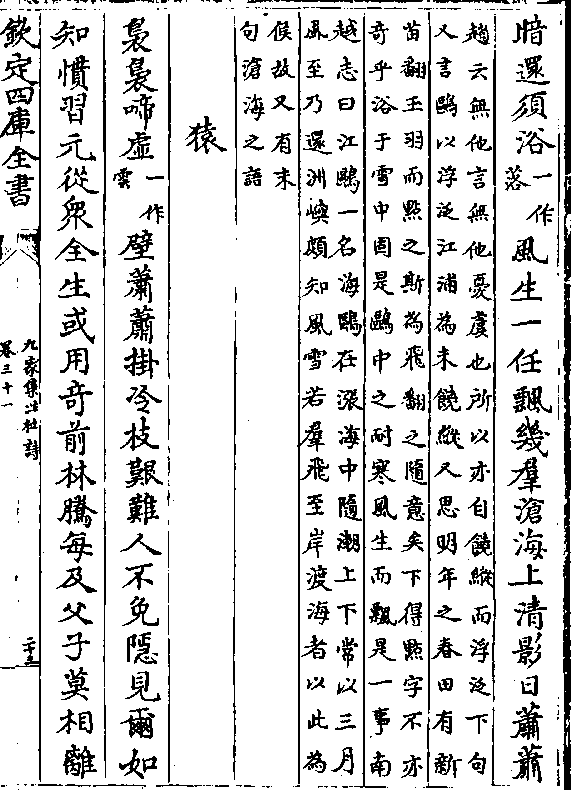 暗還須浴一作落風生一任飄幾羣滄海上清影日蕭蕭
趙云無他言無他憂虞也所以亦自饒縱而浮泛下句
又言鷗以浮泛江浦為未饒縱又思明年之春田有新
苗翻玉羽而點之斯為飛翻之隨意矣下得點字不亦
奇乎浴于雪中固是鷗中之耐寒風生而飄是一事南
越志曰江鷗一名海鷗在漲海中隨潮上下常以三月
風至乃還洲嶼頗知風雪若羣飛至岸渡海者以此為
候故又有末
句滄海之語
猿
裊裊啼虛一作雲壁蕭蕭掛冷枝艱難人不免隱見爾如
知慣習元從衆全生或用奇前林騰每及父子莫相離
欽定四庫全書
九家集注杜詩
卷三十一
二十三